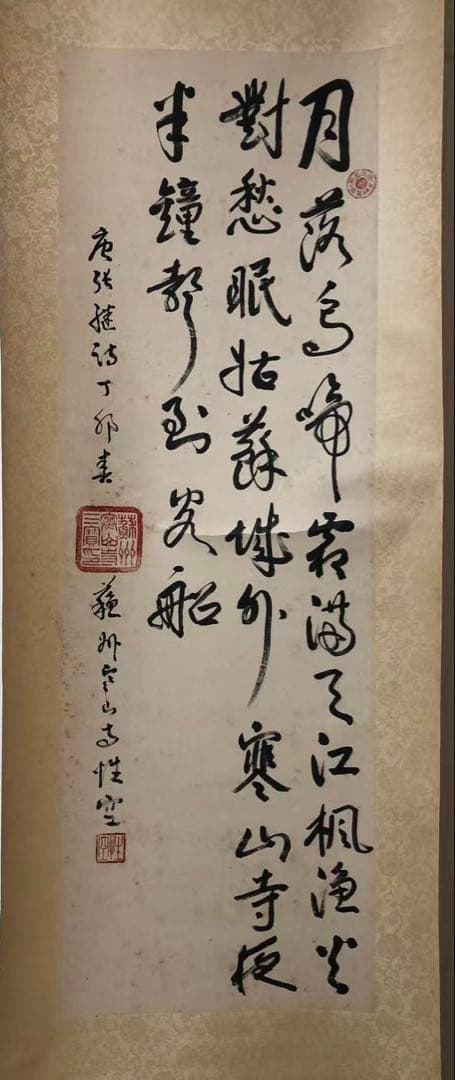 月落烏啼霜滿天江楓漁火
對愁眠姑蘇城外寒山寺夜
半鐘聲到客船
唐張继詩丁卯春
蘇州寒山寺性空
蘇州寒山寺三寶印